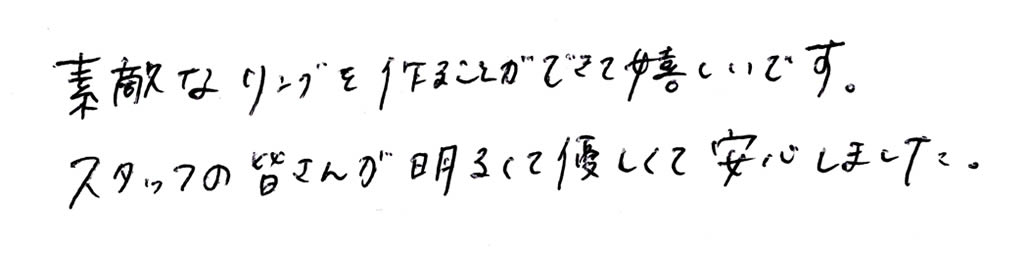 素敵なリングを作ることができて嬉しいです。
スタッフの皆さんが明るくて優しくて安心しました。